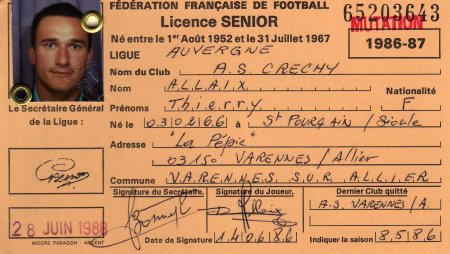 FÉDÉRATION FRANÇAISE DE FOOTBALL
65203643
Licence SENIOR
MUTATION
Né entre le 1er Août 1952 et le 31 Juillet 1967
1986-87
LIGUE AUVERGNE
Nom du Club A.S. CRECHY
Nom ALLAIX
Nationalité
Prénoms Thierry F
Le Secrétaire Général
de la Ligue :
Né le 03 02 66 à St POURÇAIN / Sioule
Adresse "La Pépie"
03150 VARENNES / Allier
Commune VARENNES SUR ALLIER
Signature du Secrétaire, Signature du Joueur, Dernier Club quitté
A.S. VARENNES/A.
28 JUIN 1986
MOORE PARAGON - ARGENT
Date de Signature 14 06 86 Indiquer la saison 85 86